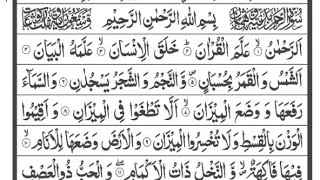 بِسْمِ اللهِ الرَّحْمٰنِ الرَّحِيْمِ
اَلرَّحْمٰنُ ۙ۝۱ عَلَّمَ الْقُرْاٰنَ ؕ۝۲ خَلَقَ الْاِنْسَانَ ۙ۝۳ عَلَّمَهُ الْبَيَانَ ۝۴
اَلشَّمْسُ وَ الْقَمَرُ بِحُسْبَانٍ ۪۝۵ وَّ النَّجْمُ وَ الشَّجَرُ يَسْجُدٰنِ ۝۶ وَ السَّمَآءَ
رَفَعَهَا وَ وَضَعَ الْمِيْزَانَ ۙ۝۷ اَلَّا تَطْغَوْا فِي الْمِيْزَانِ ۝۸ وَ اَقِيْمُوا
الْوَزْنَ بِالْقِسْطِ وَ لَا تُخْسِرُوا الْمِيْزَانَ ۝۹ وَ الْاَرْضَ وَضَعَهَا لِلْاَنَامِ ۙ۝۱۰
فِيْهَا فَاكِهَةٌ ۪ۙ وَّ النَّخْلُ ذَاتُ الْاَكْمَامِ ۖ۝۱۱ وَ الْحَبُّ ذُو الْعَصْفِ